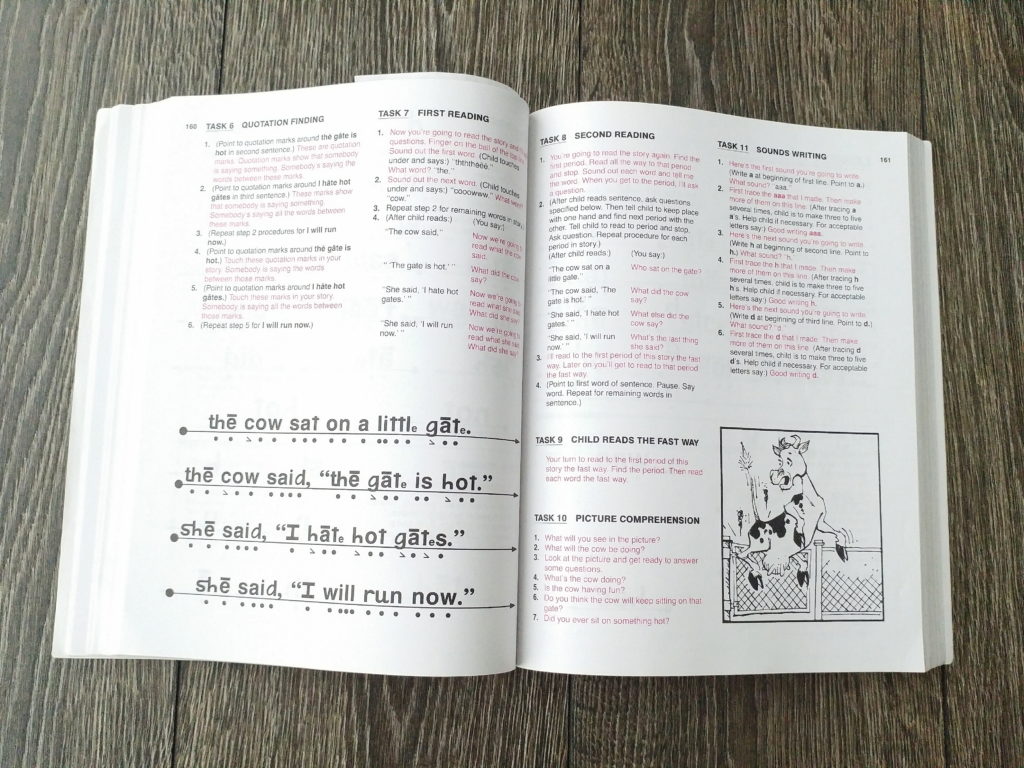 160 TASK 6 QUOTATION FINDING
1. (Point to quotation marks around the gāte is
hot in second sentence.) These are quotation
marks. Quotation marks show that somebody
is saying something. Somebody's saying the
words between these marks.
2. (Point to quotation marks around I hāte hot
gātes in third sentence.) These marks show
that somebody is saying something.
Somebody's saying all the words between
these marks.
3. (Repeat step 2 procedures for I will run
now.)
4. (Point to quotation marks around thē gāte is
hot.) Touch these quotation marks in your
story. Somebody is saying the words
between those marks.
5. (Point to quotation marks around I hāte hot
gātes.) Touch these marks in your story.
Somebody is saying all the words between
those marks.
6. (Repeat step 5 for I will run now.)
TASK 7 FIRST READING
1. Now you're going to read the story and
questions. Finger on the ball of the
Sound out the first word. (Child touches
under and says:) "thththēēē."
What word? "the."
2. Sound out the next word. (Child touches
under and says:) "cooowww." What word?
"cow."
3. Repeat step 2 for remaining words in story.
4. (After child reads:) (You say:)
"The cow said," Now we're going to
read what the cow
said.
" 'The gate is hot.' " What did the cow
say?
"She said, 'I hate hot Now we're going to
gates.' " read what she said.
What did she say?
"She said, 'I will run Now we're going to
now.' " read what she said.
What did she say?
thē cow sat on a little gāte.
thē cow said, "thē gāte is hot."
shē said, "I hāte hot gātes."
shē said, "I will run now."
TASK 8 SECOND READING
1. You're going to read the story again. Find the
first period. Read all the way to that period
and stop. Sound out each word and tell me
the word. When you get to the period, I'll ask
a question.
2. (After child reads sentence, ask questions
specified below. Then tell child to keep place
with one hand and find next period with the
other. Tell child to read to period and stop.
Ask question. Repeat procedure for each
period in story.)
(After child reads:) (You say:)
"The cow sat on a Who sat on the gate?
little gate."
"The cow said, 'The What did the cow
gate is hot.' " say?
"She said, 'I hate hot What else did the
gates.' " cow say?
"She said, 'I will run What's the last thing
now.' " she said?
3. I'll read to the first period of this story the fast
way. Later on you'll get to read to that period
the fast way.
4. (Point to first word of sentence. Pause. Say
word. Repeat for remaining words in
sentence.)
TASK 9 CHILD READS THE FAST WAY
Your turn to read to the first period of this
story the fast way. Find the period. Then read
each word the fast way.
TASK 10 PICTURE COMPREHENSION
1. What will you see in the picture?
2. What will the cow be doing?
3. Look at the picture and get ready to answer
some questions.
4. What's the cow doing?
5. Is the cow having fun?
6. Do you think the cow will keep sitting on that
gate?
7. Did you ever sit on something hot?
TASK 11 SOUNDS WRITING 161
1. Here's the first sound you're going to write.
(Write a at beginning of first line. Point to a.)
What sound? "aaa."
2. First trace the aaa that I made. Then make
more of them on this line. (After tracing a
several times, child is to make three to five
a's. Help child if necessary. For acceptable
letters say:) Good writing aaa.
3. Here's the next sound you're going to write.
(Write h at beginning of second line. Point to
h.) What sound? "h."
4. First trace the h that I made. Then make
more of them on this line. (After tracing h
several times, child is to make three to five
h's. Help child if necessary. For acceptable
letters say:) Good writing h.
5. Here's the next sound you're going to write.
(Write d at beginning of third line. Point to d.)
What sound? "d."
6. First trace the d that I made. Then make
more of them on this line. (After tracing d
several times, child is to make three to five
d's. Help child if necessary. For acceptable
letters say:) Good writing d.